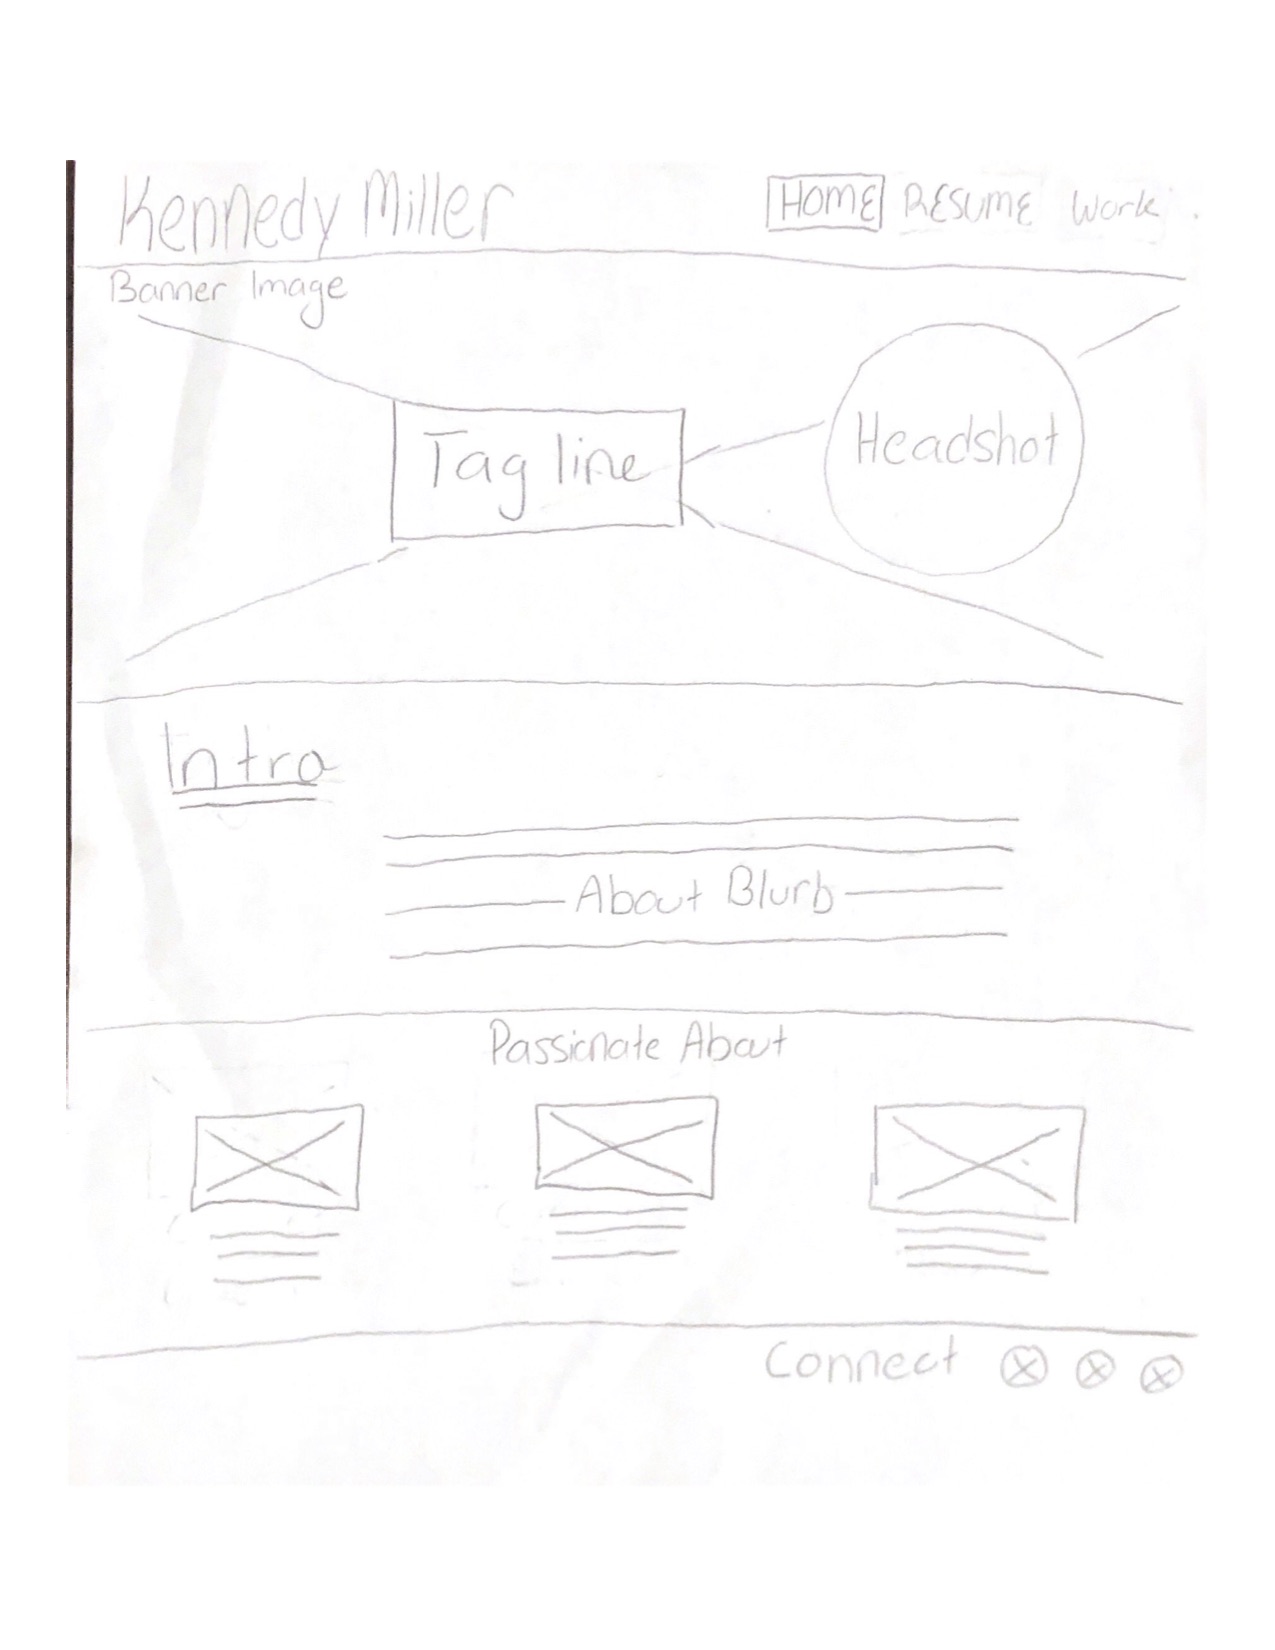 Kennedy Miller
HOME RESUME Work
Banner Image
Tag line
Headshot
Intro
About Blurb
Passionate About
Connect